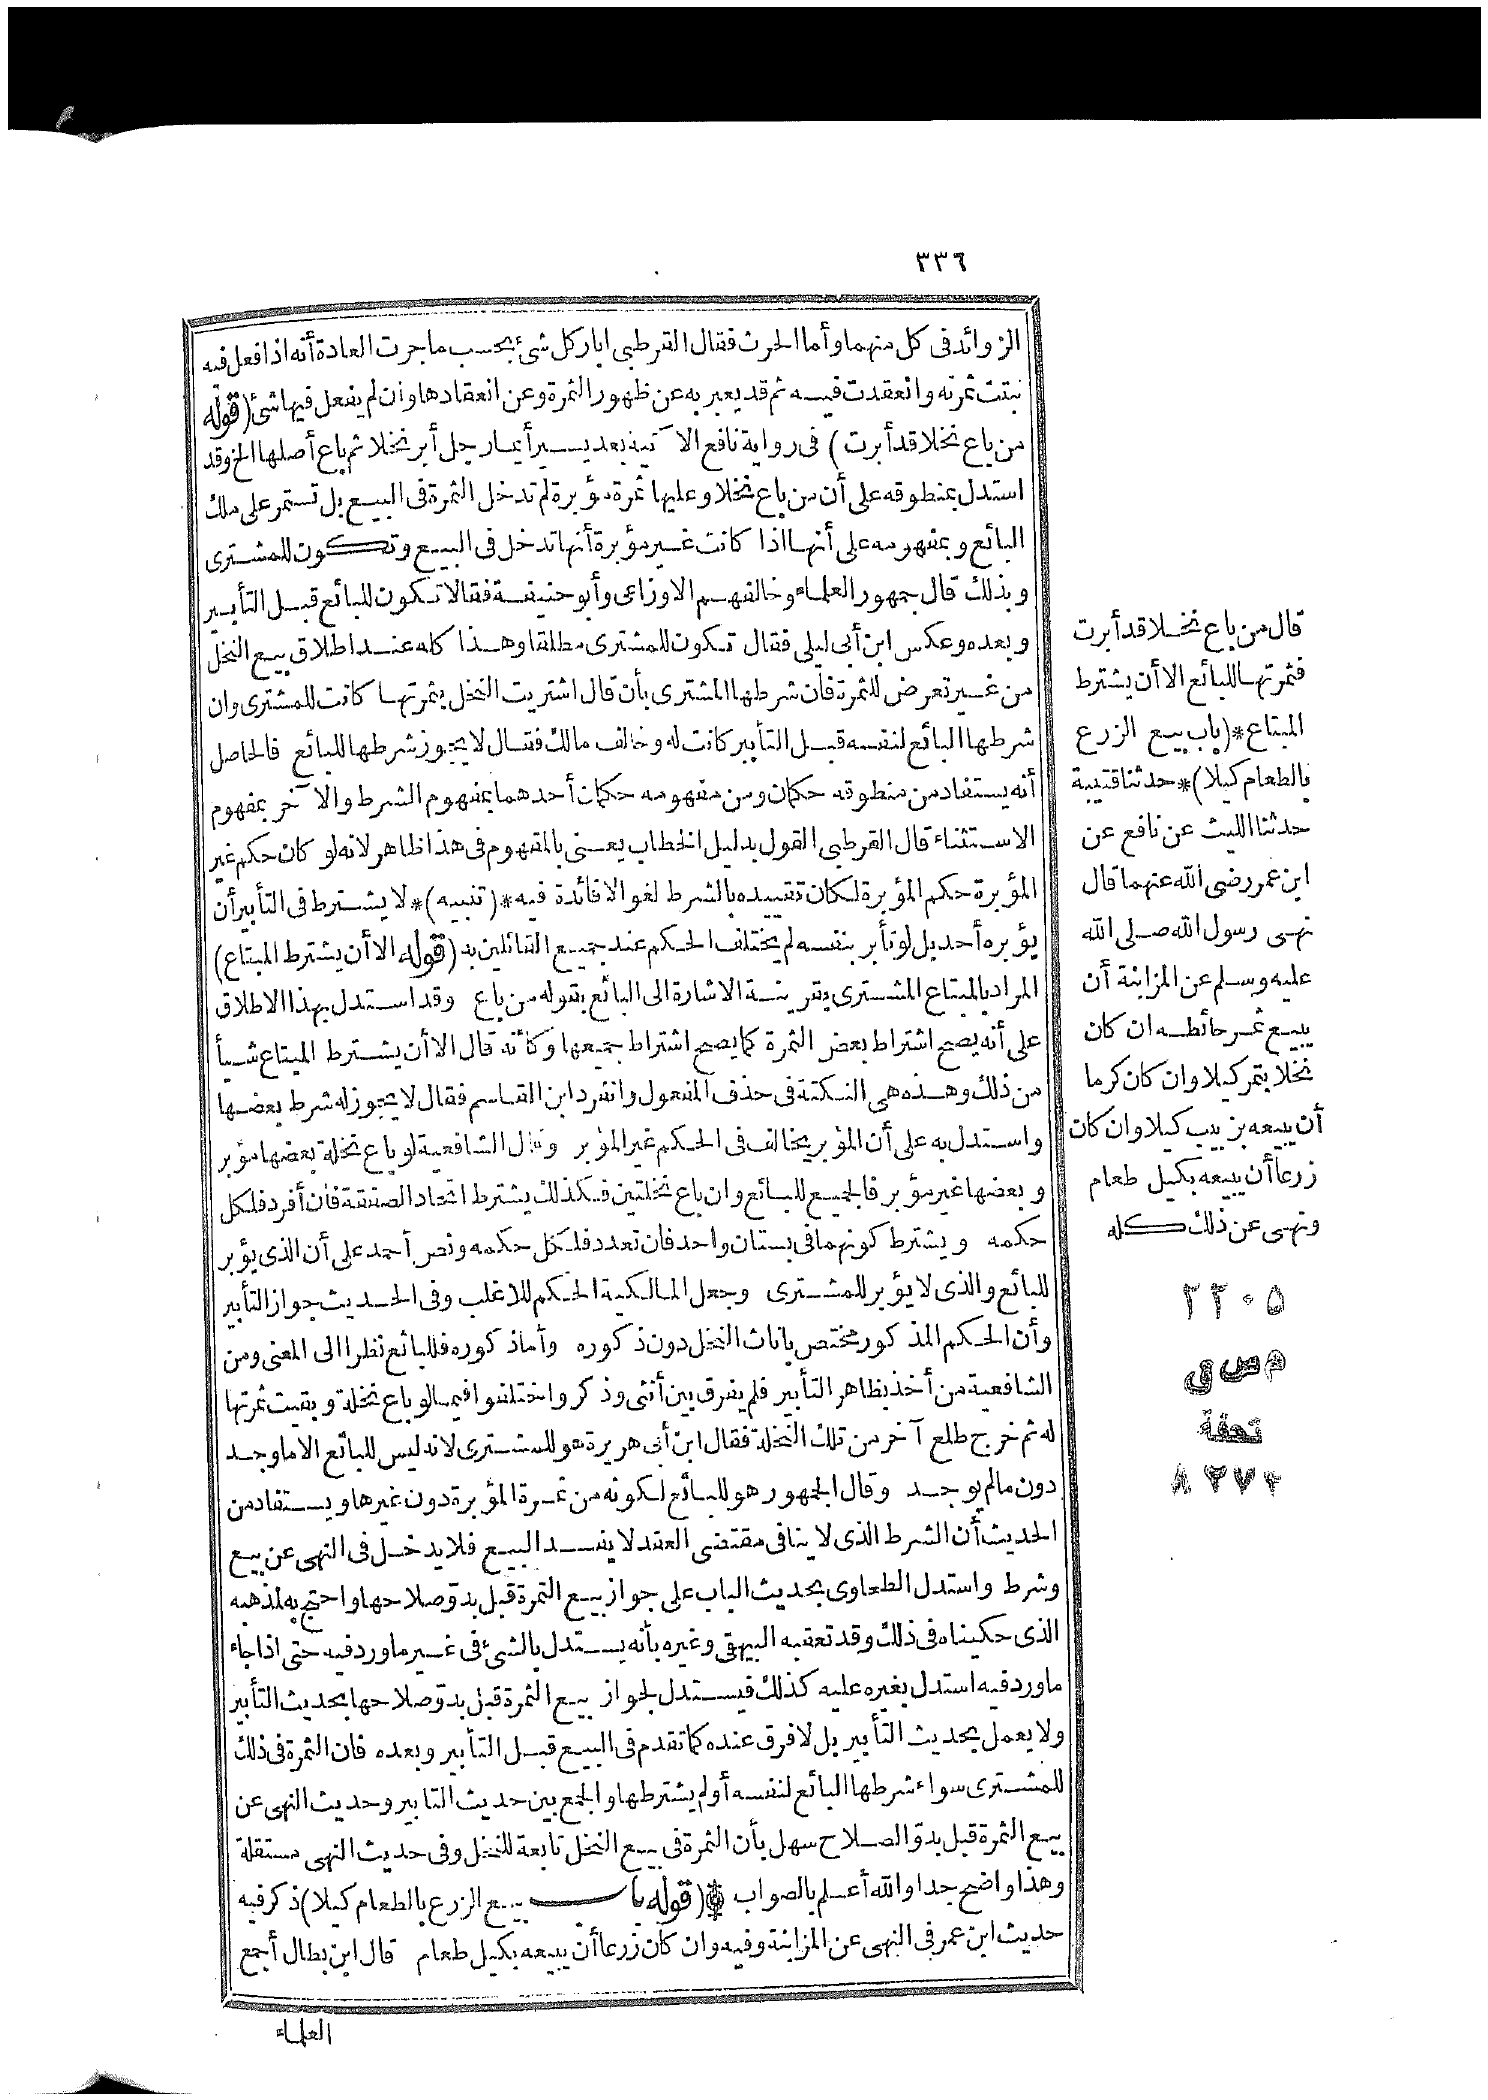 ٣٣٦
الزوائد فى كل منهما وأما الحرث فقال القرطبى ابار كل شئ بحسب ما جرت العادة أنه اذا فعل فيه
نبتت ثمرته وانعقدت فيه ثم قد يعبر به عن ظهور الثمرة وعن انعقادها وان لم يفعل فيها شئ (قوله
من باع نخلا قد أبرت) فى رواية نافع الآتية بعد يسير أيما رجل أبر نخلا ثم باع أصلها الخ وقد
استدل بمنطوقه على أن من باع نخلا وعليها ثمرة مؤبرة لم تدخل الثمرة فى البيع بل تستمر على ملك
البائع وبمفهومه على أنها اذا كانت غير مؤبرة أنها تدخل فى البيع وتكون للمشترى
وبذلك قال جمهور العلماء وخالفهم الاوزاعى وأبو حنيفة فقالا تكون للبائع قبل التأبير
وبعده وعكس ابن أبى ليلى فقال تكون للمشترى مطلقا وهذا كله عند اطلاق بيع النخل
من غير تعرض للثمرة فان شرطها المشترى بأن قال اشتريت النخل بثمرتها كانت للمشترى وان
شرطها البائع لنفسه قبل التأبير كانت له وخالف مالك فقال لا يجوز شرطها للبائع فالحاصل
أنه يستفاد من منطوقه حكمان ومن مفهومه حكمان أحدهما بمفهوم الشرط والآخر بمفهوم
الاستثناء قال القرطبى القول بدليل الخطاب يعنى بالمفهوم فى هذا ظاهر لانه لو كان حكم غير
المؤبرة حكم المؤبرة لكان تقييده بالشرط لغوا لا فائدة فيه * (تنبيه) * لا يشترط فى التأبير أن
يؤبره أحد بل لو تأبر بنفسه لم يختلف الحكم عند جميع القائلين به (قوله الا أن يشترط المبتاع)
المراد بالمبتاع المشترى بقرينة الاشارة الى البائع بقوله من باع وقد استدل بهذا الاطلاق
على أنه يصح اشتراط بعض الثمرة كما يصح اشتراط جميعها وكأنه قال الا أن يشترط المبتاع شيأ
من ذلك وهذه هى النكتة فى حذف المفعول وانفرد ابن القاسم فقال لا يجوز له شرط بعضها
واستدل به على أن المؤبر يخالف فى الحكم غير المؤبر وقال الشافعية لو باع نخلة بعضها مؤبر
وبعضها غير مؤبر فالجميع للبائع وان باع نخلتين فكذلك يشترط اتحاد الصفقة فان أفرد فلكل
حكمه ويشترط كونهما فى بستان واحد فان تعدد فلكل حكمه ونص أحمد على أن الذى يؤبر
للبائع والذى لا يؤبر للمشترى وجعل المالكية الحكم للاغلب وفى الحديث جواز التأبير
وأن الحكم المذكور مختص باناث النخل دون ذكوره وأما ذكوره فللبائع نظرا الى المعنى ومن
الشافعية من أخذ بظاهر التأبير فلم يفرق بين أنثى وذكر واختلفوا فيما لو باع نخلة وبقيت ثمرتها
له ثم خرج طلع آخر من تلك النخلة فقال ابن أبى هريرة هو للمشترى لانه ليس للبائع الا ما وجد
دون ما لم يوجد وقال الجمهور هو للبائع لكونه من ثمرة المؤبرة دون غيرها ويستفاد من
الحديث أن الشرط الذى لا ينافى مقتضى العقد لا يفسد البيع فلا يدخل فى النهى عن بيع
وشرط واستدل الطحاوى بحديث الباب على جواز بيع الثمرة قبل بدو صلاحها واحتج به لمذهبه
الذى حكيناه فى ذلك وقد تعقبه البيهقى وغيره بأنه يستدل بالشئ فى غير ما ورد فيه حتى اذا جاء
ما ورد فيه استدل بغيره عليه كذلك فيستدل لجواز بيع الثمرة قبل بدو صلاحها بحديث التأبير
ولا يعمل بحديث التأبير بل لا فرق عنده كما تقدم فى البيع قبل التأبير وبعده فان الثمرة فى ذلك
للمشترى سواء شرطها البائع لنفسه أو لم يشترطها والجمع بين حديث التأبير وحديث النهى عن
بيع الثمرة قبل بدو الصلاح سهل بأن الثمرة فى بيع النخل تابعة للنخل وفى حديث النهى مستقلة
وهذا واضح جدا والله أعلم بالصواب (قوله باب بيع الزرع بالطعام كيلا) ذكر فيه
حديث ابن عمر فى النهى عن المزابنة وفيه وان كان زرعا أن يبيعه بكيل طعام قال ابن بطال أجمع
العلماء
قال من باع نخلا قد أبرت
فثمرتها للبائع الا أن يشترط
المبتاع * (باب بيع الزرع
بالطعام كيلا) * حدثنا قتيبة
حدثنا الليث عن نافع عن
ابن عمر رضى الله عنهما قال
نهى رسول الله صلى الله
عليه وسلم عن المزابنة أن
يبيع ثمر حائطه ان كان
نخلا بتمر كيلا وان كان كرما
أن يبيعه بزبيب كيلا وان كان
زرعا أن يبيعه بكيل طعام
ونهى عن ذلك كله
٢٢٠٥
م س ق
تحفة
٨٢٧٣